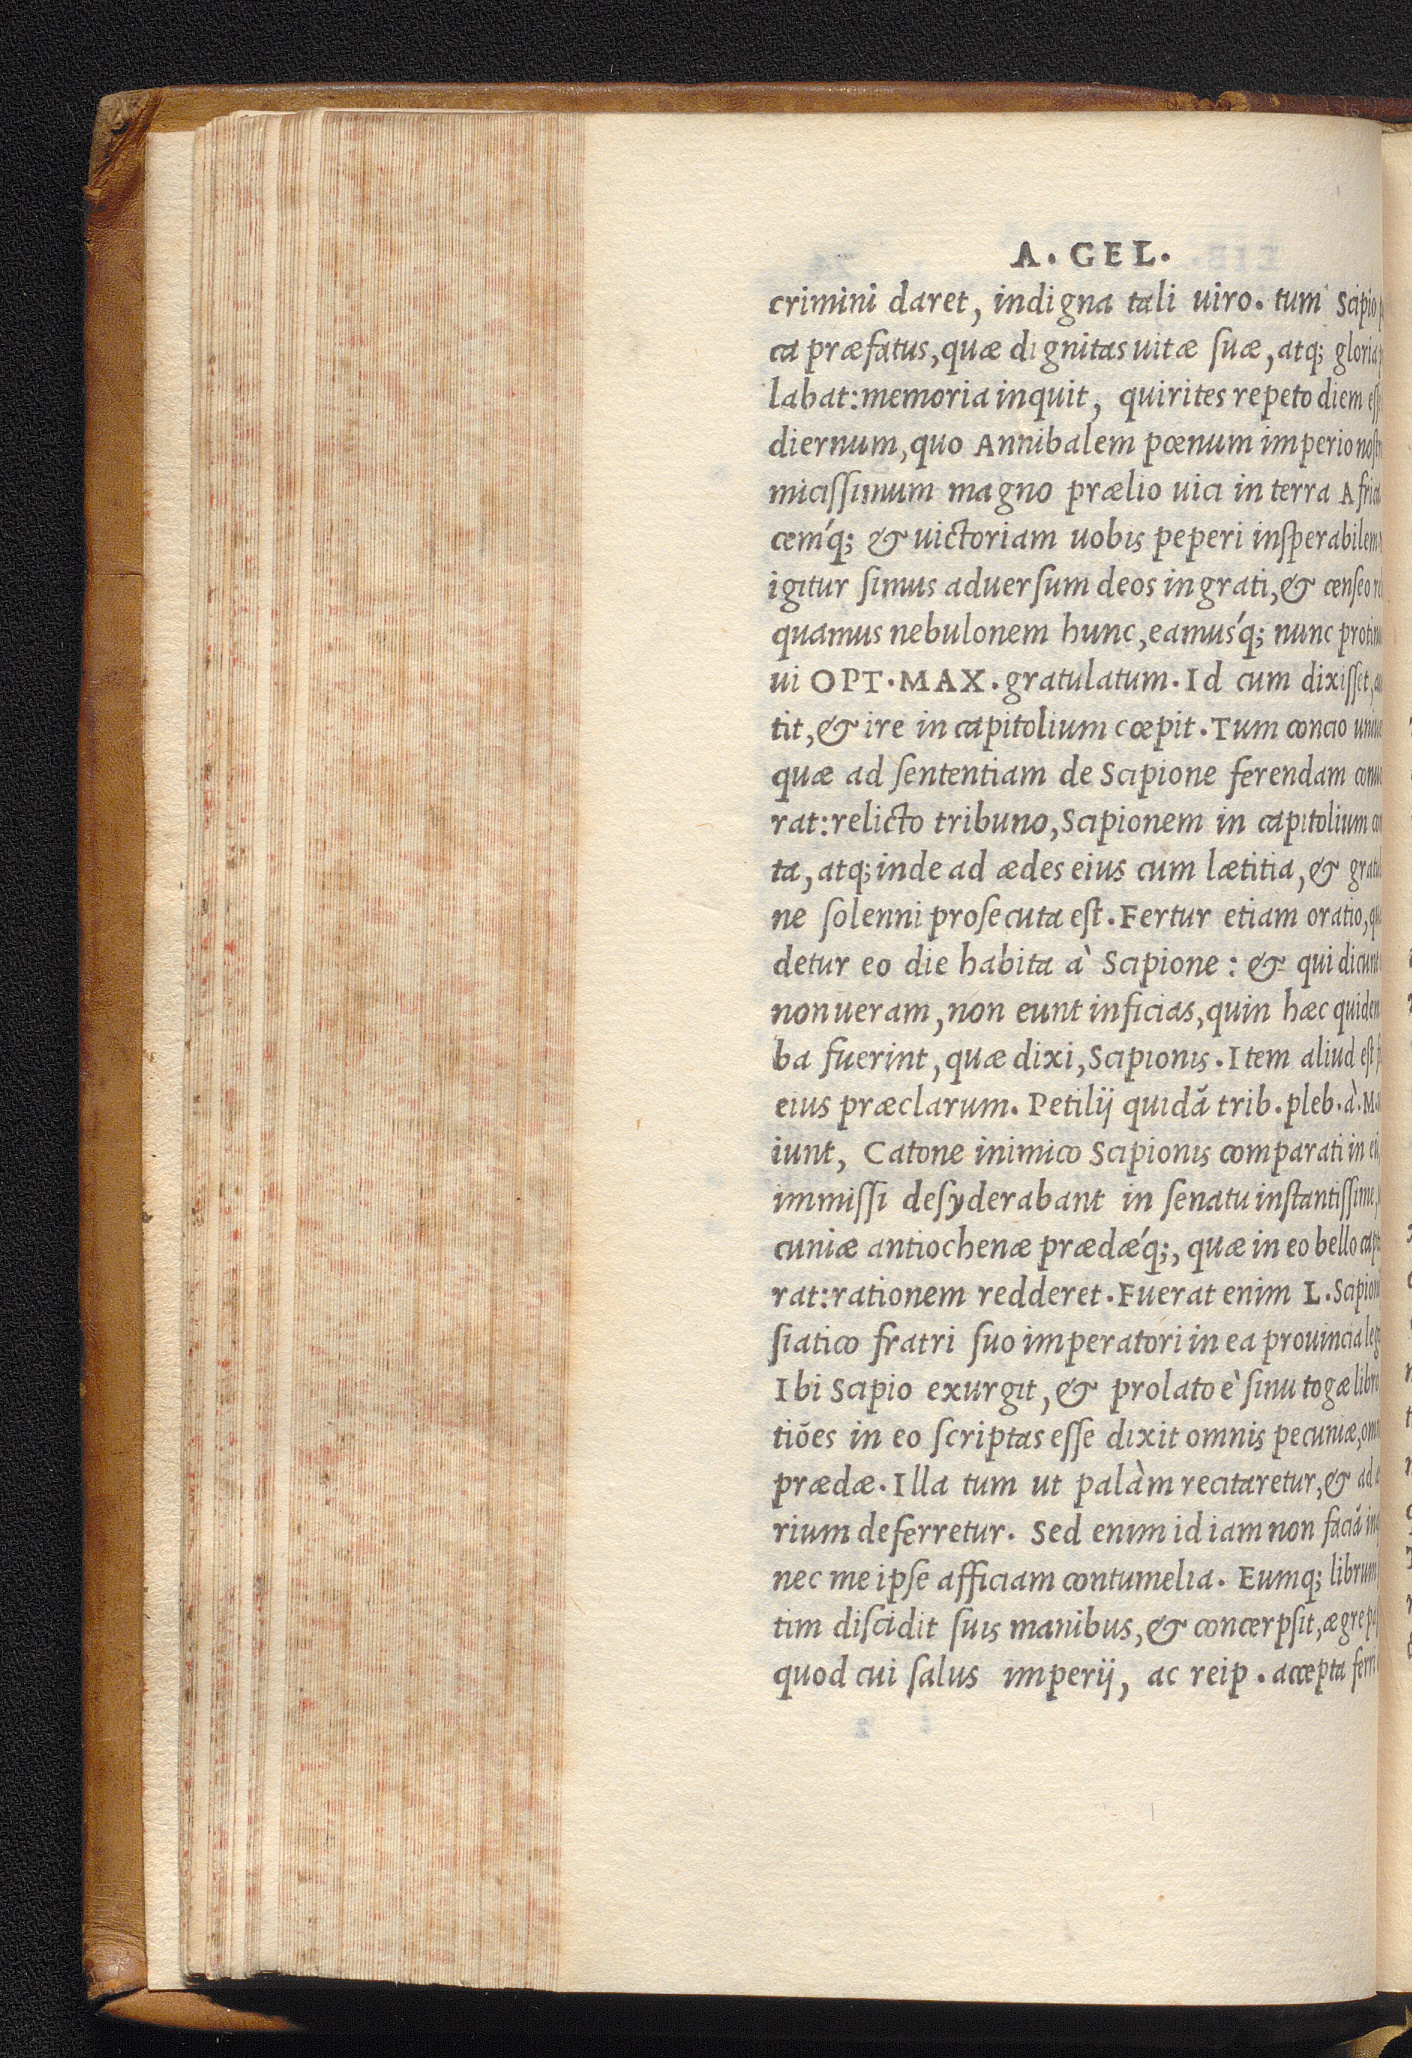 A. GEL.
crimini daret, indigna tali uiro. tum Scipio
ca præfatus, quæ dignitas uitæ suæ, atq; gloria
labat: memoria inquit, quirites repeto diem
diernum, quo Annibalem pœnum imperio
micissimum magno prælio uici in terra
cem'q; & uictoriam uobis peperi insperabilem
igitur simus aduersum deos ingrati, & censeo
quamus nebulonem hunc, eamus'q; nunc
ui OPT. MAX. gratulatum. Id cum dixisset,
tit, & ire in capitolium cœpit. Tum concio
quæ ad sententiam de Scipione ferendam
rat: relicto tribuno, Scipionem in capitolium
ta, atq; inde ad ædes eius cum lætitia, &
ne solenni prosecuta est. Fertur etiam oratio,
detur eo die habita à Scipione: & qui dicunt
non ueram, non eunt inficias, quin hæc
ba fuerint, quæ dixi, Scipionis. Item aliud est
eius præclarum. Petilij quidā trib. pleb. à.
iunt, Catone inimico Scipionis comparati in
immissi desyderabant in senatu instantissime,
cuniæ antiochenæ prædæ'q;, quæ in eo bello
rat: rationem redderet. Fuerat enim L.
siatico fratri suo imperatori in ea prouincia
Ibi Scipio exurgit, & prolato è sinu togæ
tiōes in eo scriptas esse dixit omnis pecuniæ,
prædæ. Illa tum ut palàm recitaretur, & ad
rium deferretur. Sed enim id iam non faciā
nec me ipse afficiam contumelia. Eumq; librum
tim discidit suis manibus, & concerpsit, ægre
quod cui salus imperij, ac reip. accepta